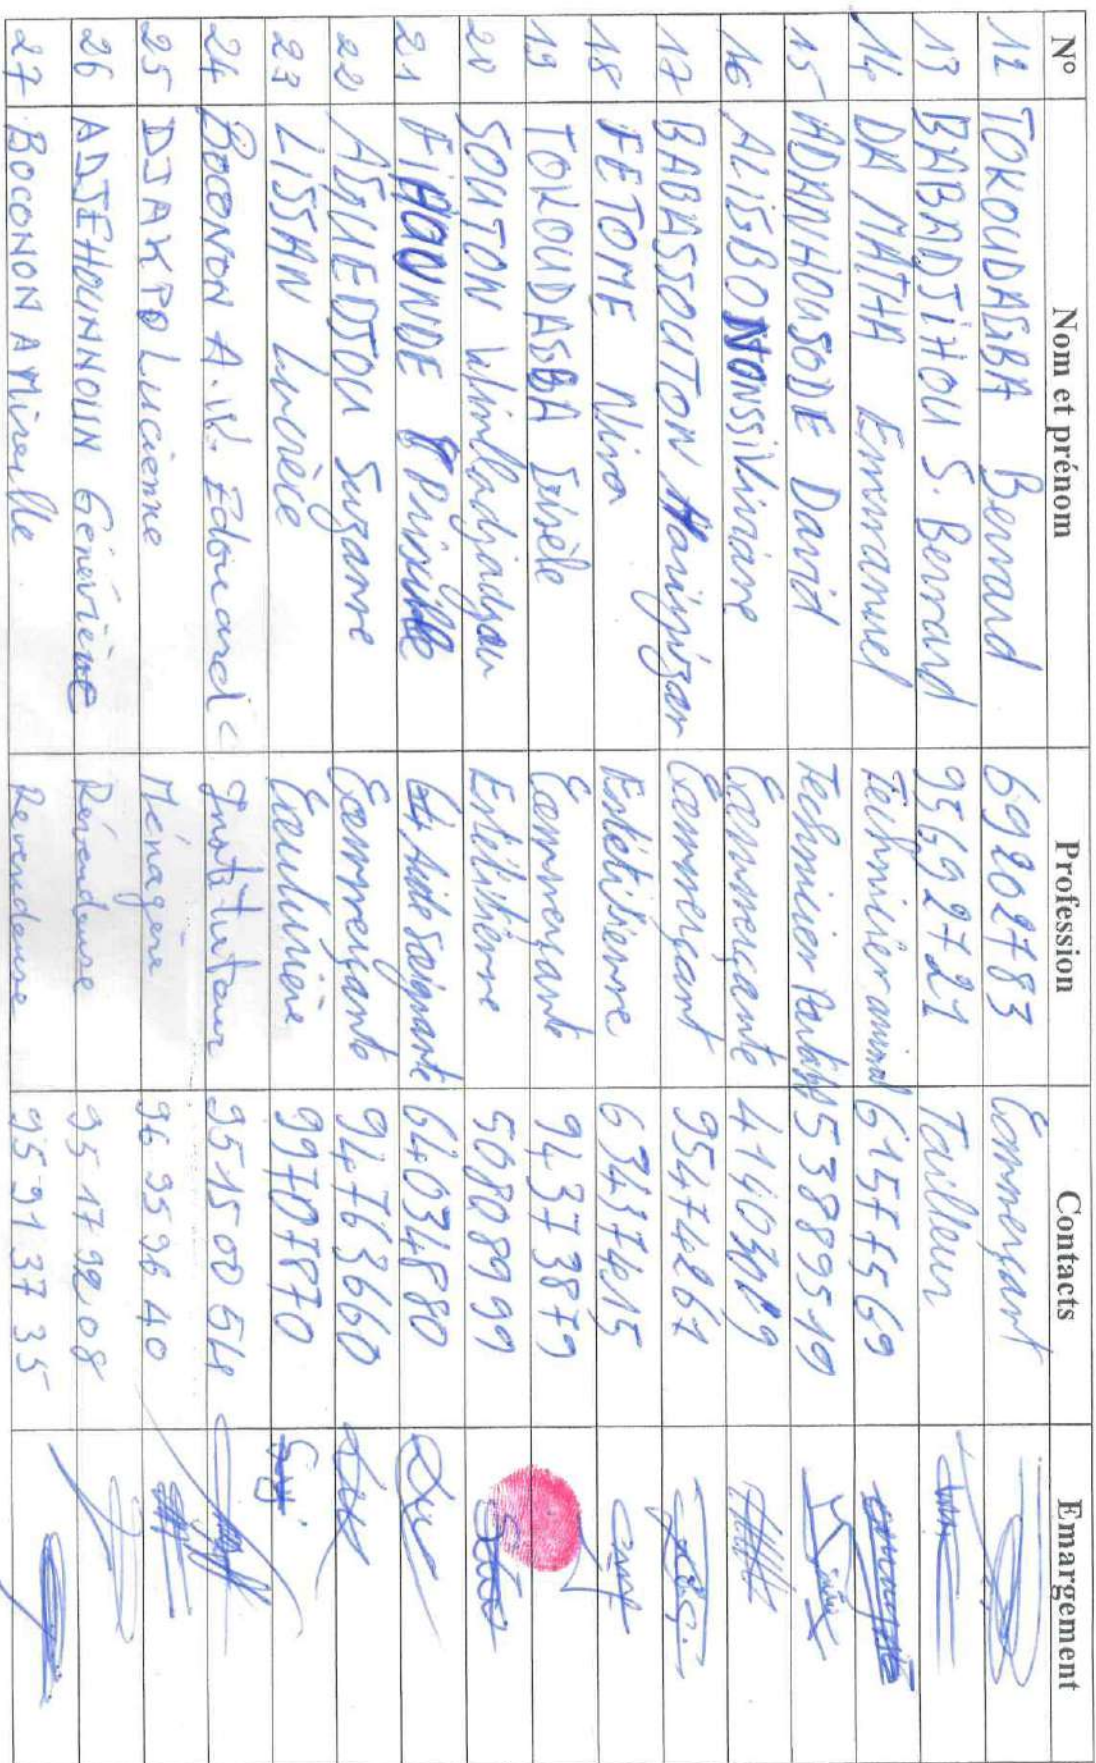 N° Nom et prénom Profession Contacts Emargement
12 TOKOUDAGBA Bernard 69202783 Commerçant
13 BABADJIHOU S. Bernard 95692721 Tailleur
14 DA MATHA Emmanuel Technicien animal 61575569
15 ADANHOUSODE David Technicien 53889519
16 ALIGBONONSSI Viviane Commerçante
17 BABASSOUTON Commerçant 95474267
18 FETOME Nina Esthétisienne 67437415
19 TOKOUDAGBA Gisèle Commerçante 94373879
20 SOUTON 50808999
21 Aide Soignante 64034880
22 AGUEDJOU Suzanne Commerçante 94763660
23 LISSAN Lucrèce Couturière 99707870
24 BOCONON A. Edouard Instituteur 95150054
25 DJAKPO Lucienne Ménagère 96 95 96 40
26 ADJEHOUNNOUN Géneviève Révendeuse 95 17 92 08
27 BOCONON A Mireille Revendeuse 95 91 37 35